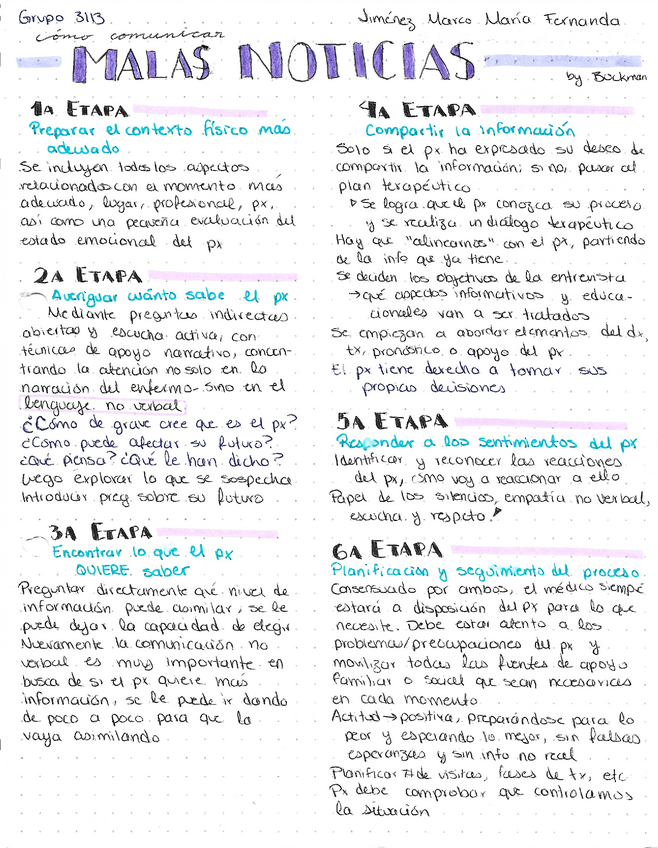 Grupo 3113
Jiménez Marco María Fernanda
cómo comunicar
MALAS NOTICIAS
by Buckman
1A ETAPA
Preparar el contexto físico más
adecuado
Se incluyen todos los aspectos
relacionados con el momento más
adecuado, lugar, profesional, px,
así como una pequeña evaluación del
estado emocional del px
2A ETAPA
Averiguar cuánto sabe el px
Mediante preguntas indirectas
abiertas y escucha activa, con
técnicas de apoyo narrativo, concen-
trando la atención no solo en la
narración del enfermo sino en el
lenguaje no verbal
¿Cómo de grave cree que es el px?
¿Cómo puede afectar su futuro?
¿Qué piensa? ¿Qué le han dicho?
Luego explorar lo que se sospecha
Introducir preg sobre su futuro
3A ETAPA
Encontrar lo que el px
QUIERE saber
Preguntar directamente qué nivel de
información puede asimilar, se le
puede dejar la capacidad de elegir
Nuevamente la comunicación no
verbal es muy importante en
busca de si el px quiere más
información, se le puede ir dando
de poco a poco para que la
vaya asimilando
4A ETAPA
Compartir la información
Solo si el px ha expresado su deseo de
compartir la información; si no, pasar al
plan terapéutico
▷ Se logra que el px conozca su proceso
y se realiza un diálogo terapéutico
Hay que "alinearnos" con el px, partiendo
de la info que ya tiene.
Se deciden los objetivos de la entrevista
→ qué aspectos informativos y educa-
cionales van a ser tratados
Se empiezan a abordar elementos del dx,
tx, pronóstico o apoyo del px.
El px tiene derecho a tomar sus
propias decisiones
5A ETAPA
Responder a los sentimientos del px
Identificar y reconocer las reacciones
del px, cómo voy a reaccionar a ello
Papel de los silencios, empatía no verbal,
escucha y respeto!
6A ETAPA
Planificación y seguimiento del proceso
Consensuado por ambos, el médico siempre
estará a disposición del px para lo que
necesite. Debe estar atento a los
problemas/preocupaciones del px y
movilizar todas las fuentes de apoyo
familiar o social que sean necesarias
en cada momento
Actitud → positiva, preparándose para lo
peor y esperando lo mejor, sin falsas
esperanzas y sin info no real
Planificar # de visitas, fases de tx, etc
Px debe comprobar que controlamos
la situación